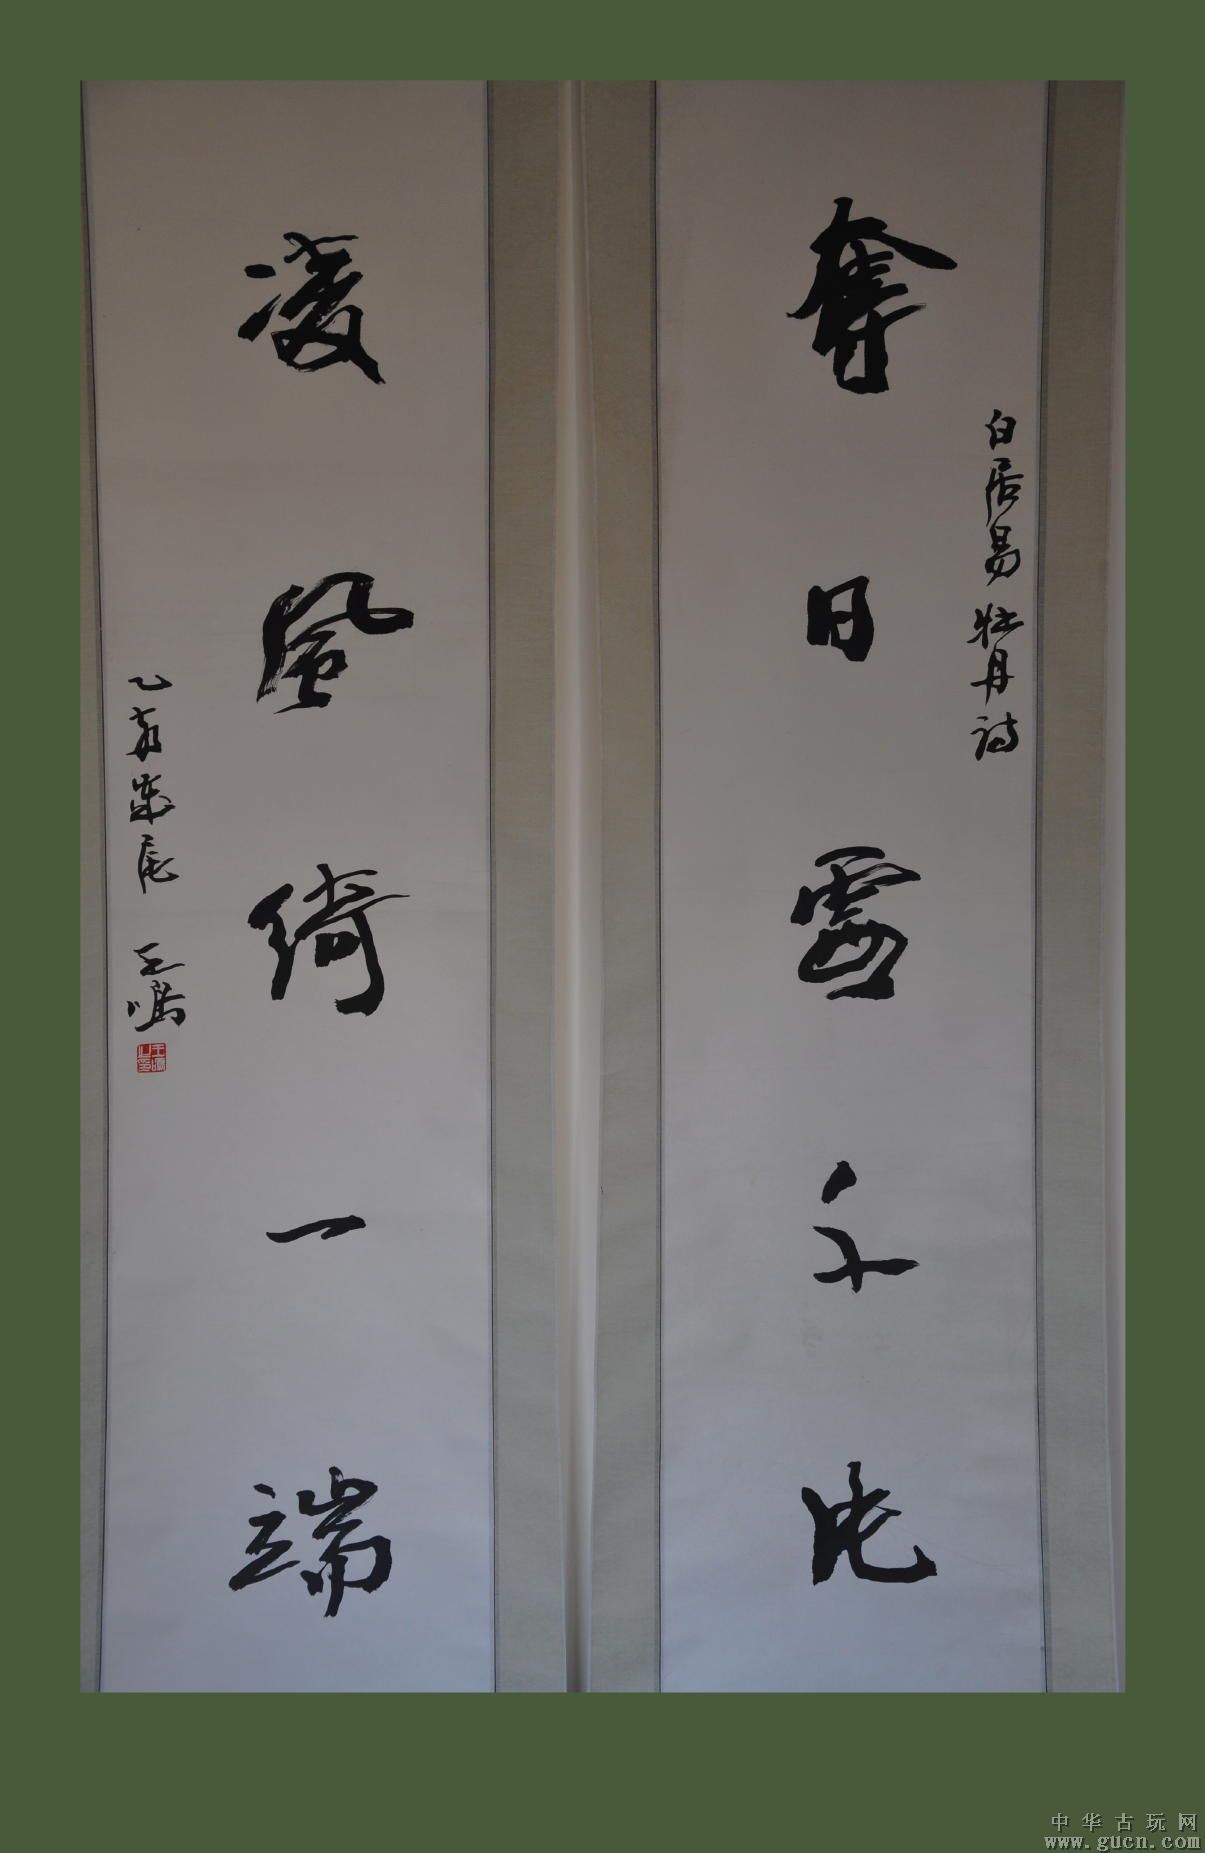 白居易牡丹詩
奪日霞千片
凌風綺一端
乙亥歲尾 王
中华古玩网
www.gucn.com